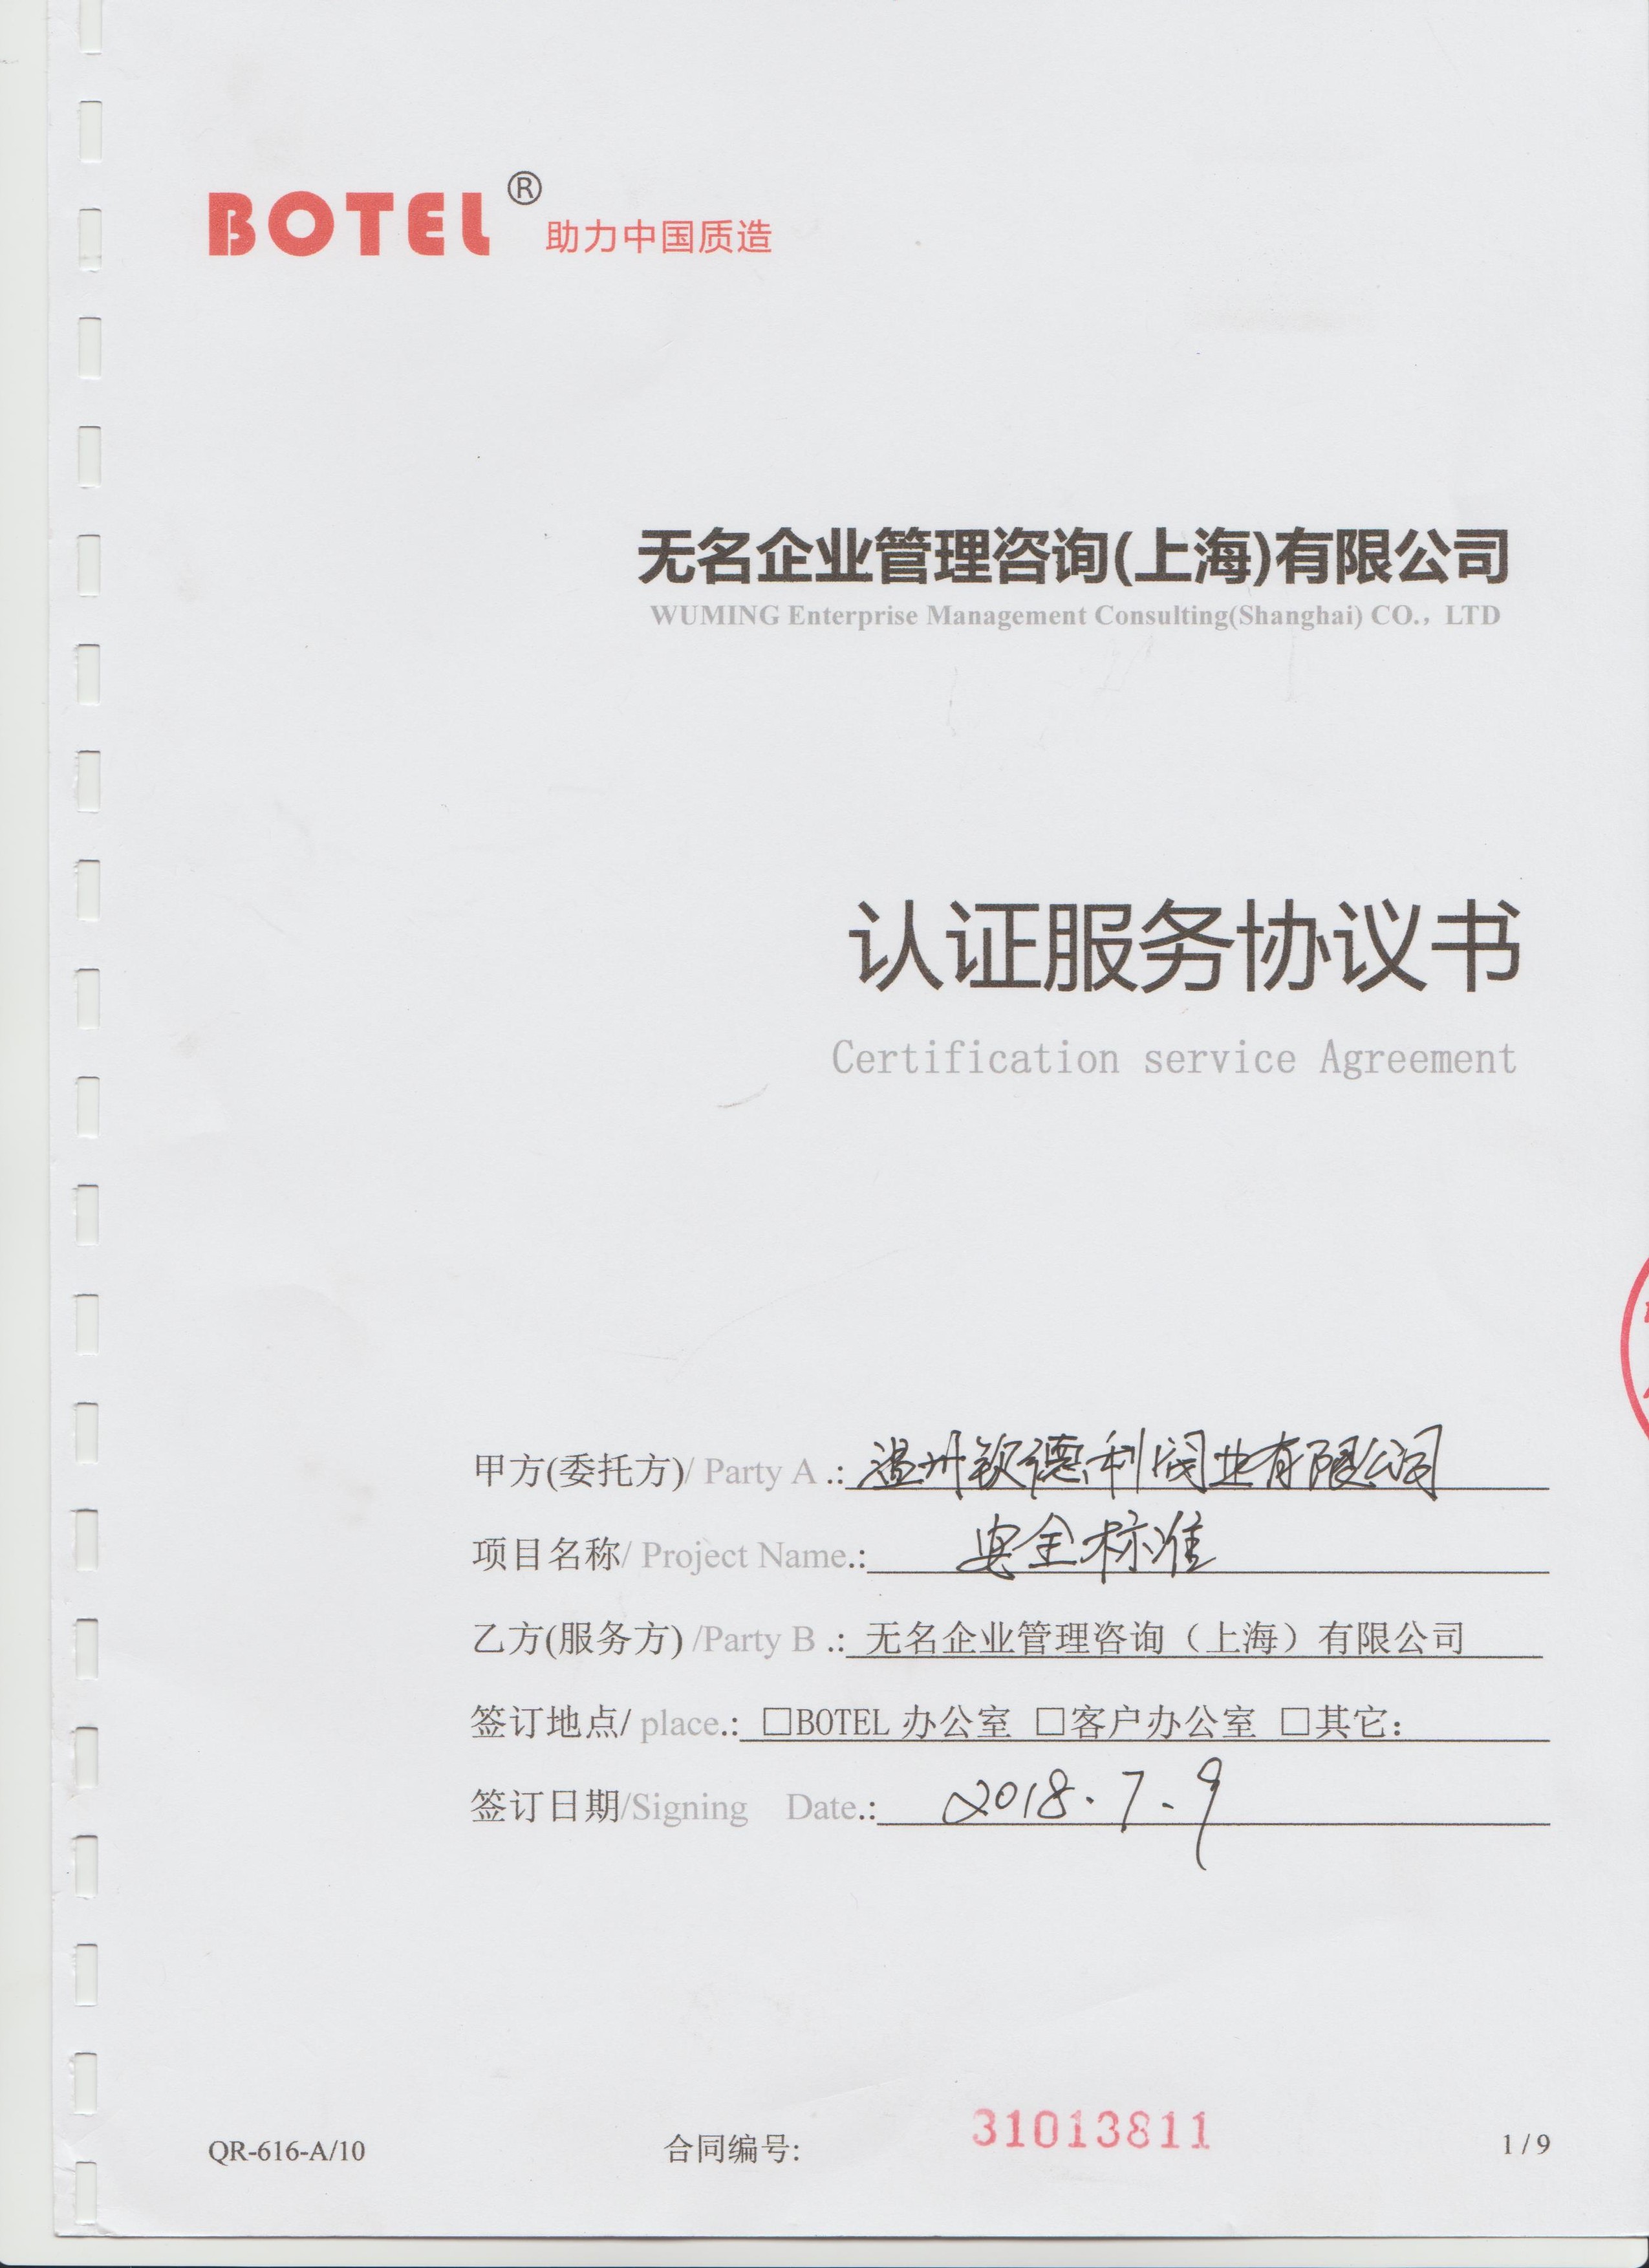 BOTEL® 助力中国质造
无名企业管理咨询(上海)有限公司
WUMING Enterprise Management Consulting(Shanghai) CO., LTD
认证服务协议书
Certification service Agreement
甲方(委托方)/ Party A .: 温州钦德利阀业有限公司
项目名称/ Project Name.: 安全标准
乙方(服务方) /Party B .: 无名企业管理咨询（上海）有限公司
签订地点/ place.: □BOTEL 办公室 □客户办公室 □其它：
签订日期/Signing Date.: 2018.7.9
QR-616-A/10 合同编号: 31013811 1 / 9